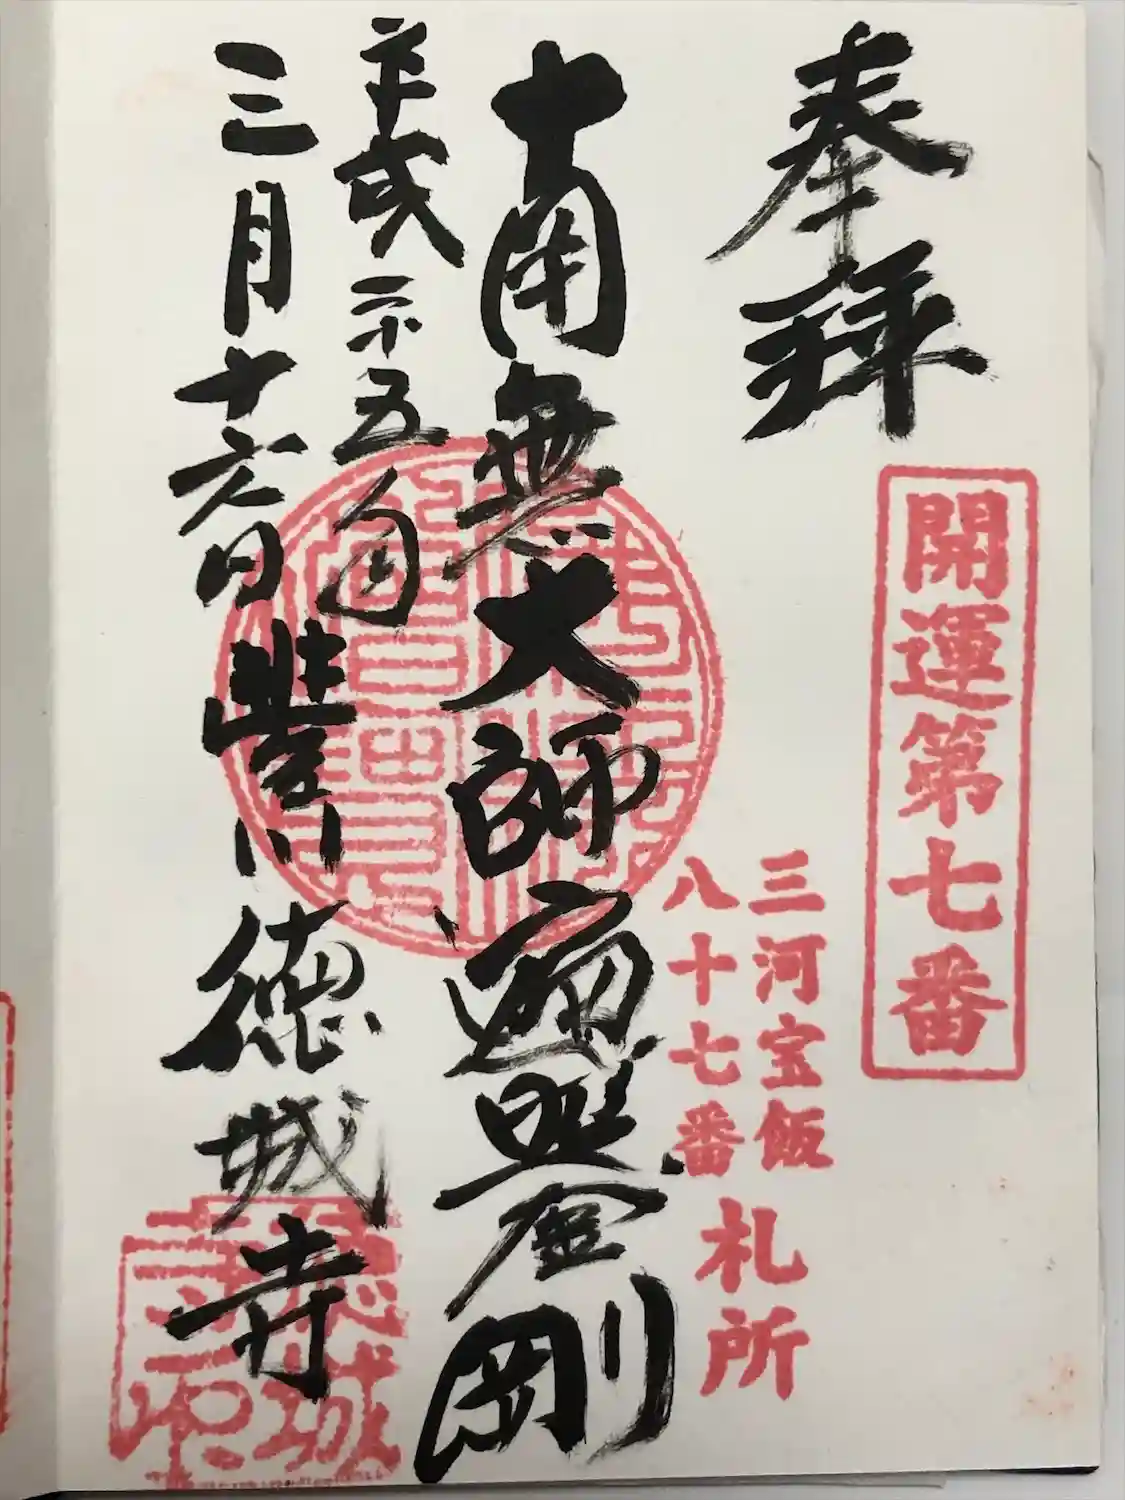 奉拝
開運第七番
三河宝飯
八十七番
札所
南無大師遍照金剛
平成二十五年
三月十六日
豊川 徳城寺
徳城
寺印